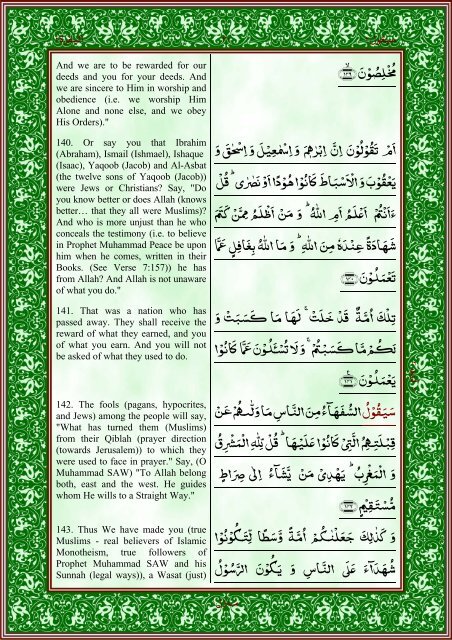 And we are to be rewarded for our
deeds and you for your deeds. And
we are sincere to Him in worship and
obedience (i.e. we worship Him
Alone and none else, and we obey
His Orders)."
مُخْلِصُوْنَ ۙ﴿۱۳۹﴾
140. Or say you that Ibrahim
(Abraham), Ismail (Ishmael), Ishaque
(Isaac), Yaqoob (Jacob) and Al-Asbat
(the twelve sons of Yaqoob (Jacob))
were Jews or Christians? Say, "Do
you know better or does Allah (knows
better… that they all were Muslims)?
And who is more unjust than he who
conceals the testimony (i.e. to believe
in Prophet Muhammad Peace be upon
him when he comes, written in their
Books. (See Verse 7:157)) he has
from Allah? And Allah is not unaware
of what you do."
اَمْ تَقُوْلُوْنَ اِنَّ اِبْرٰهٖمَ وَ اِسْمٰعِيْلَ وَ اِسْحٰقَ وَ
يَعْقُوْبَ وَ الْاَسْبَاطَ كَانُوْا هُوْدًا اَوْ نَصٰرٰى ؕ قُلْ
ءَاَنْتُمْ اَعْلَمُ اَمِ اللّٰهُ ؕ وَ مَنْ اَظْلَمُ مِمَّنْ كَتَمَ
شَهَادَةً عِنْدَهٗ مِنَ اللّٰهِ ؕ وَ مَا اللّٰهُ بِغَافِلٍ عَمَّا
تَعْمَلُوْنَ ﴿۱۴۰﴾
141. That was a nation who has
passed away. They shall receive the
reward of what they earned, and you
of what you earn. And you will not
be asked of what they used to do.
تِلْكَ اُمَّةٌ قَدْ خَلَتْ ۚ لَهَا مَا كَسَبَتْ وَ
لَكُمْ مَّا كَسَبْتُمْ ۚ وَ لَا تُسْـَٔلُوْنَ عَمَّا كَانُوْا
يَعْمَلُوْنَ ﴿۱۴۱﴾
142. The fools (pagans, hypocrites,
and Jews) among the people will say,
"What has turned them (Muslims)
from their Qiblah (prayer direction
(towards Jerusalem)) to which they
were used to face in prayer." Say, (O
Muhammad SAW) "To Allah belong
both, east and the west. He guides
whom He wills to a Straight Way."
سَيَقُوْلُ السُّفَهَآءُ مِنَ النَّاسِ مَا وَلّٰىهُمْ عَنْ
قِبْلَتِهِمُ الَّتِيْ كَانُوْا عَلَيْهَا ؕ قُلْ لِّلّٰهِ الْمَشْرِقُ
وَ الْمَغْرِبُ ؕ يَهْدِيْ مَنْ يَّشَآءُ اِلٰى صِرَاطٍ
مُّسْتَقِيْمٍ ﴿۱۴۲﴾
143. Thus We have made you (true
Muslims - real believers of Islamic
Monotheism, true followers of
Prophet Muhammad SAW and his
Sunnah (legal ways)), a Wasat (just)
وَ كَذٰلِكَ جَعَلْنٰكُمْ اُمَّةً وَّسَطًا لِّتَكُوْنُوْا
شُهَدَآءَ عَلَى النَّاسِ وَ يَكُوْنَ الرَّسُوْلُ